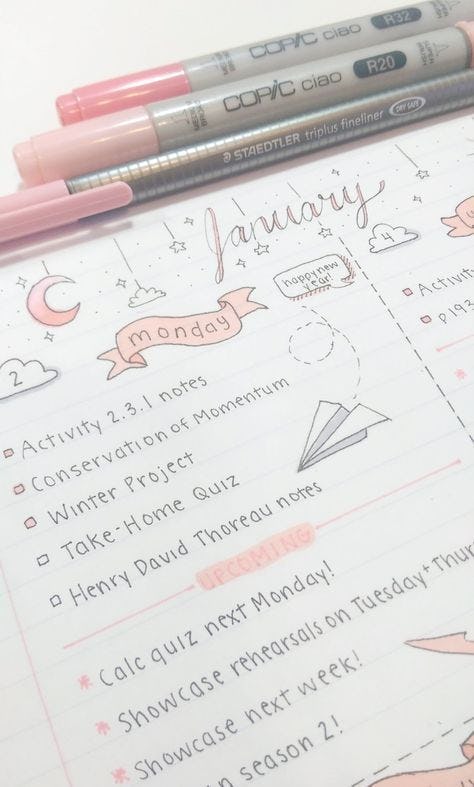 COPIC ciao R32
COPIC ciao R20
STAEDTLER triplus fineliner DRY SAFE
January
happy new
year!
4
monday
2
Activity
Activity 2.3.1 notes
Conservation of Momentum
Winter Project
Take-Home Quiz
Henry David Thoreau notes
UPCOMING
Calc quiz next Monday!
Showcase rehearsals on Tuesday + Thur
Showcase next week!
in season 2!